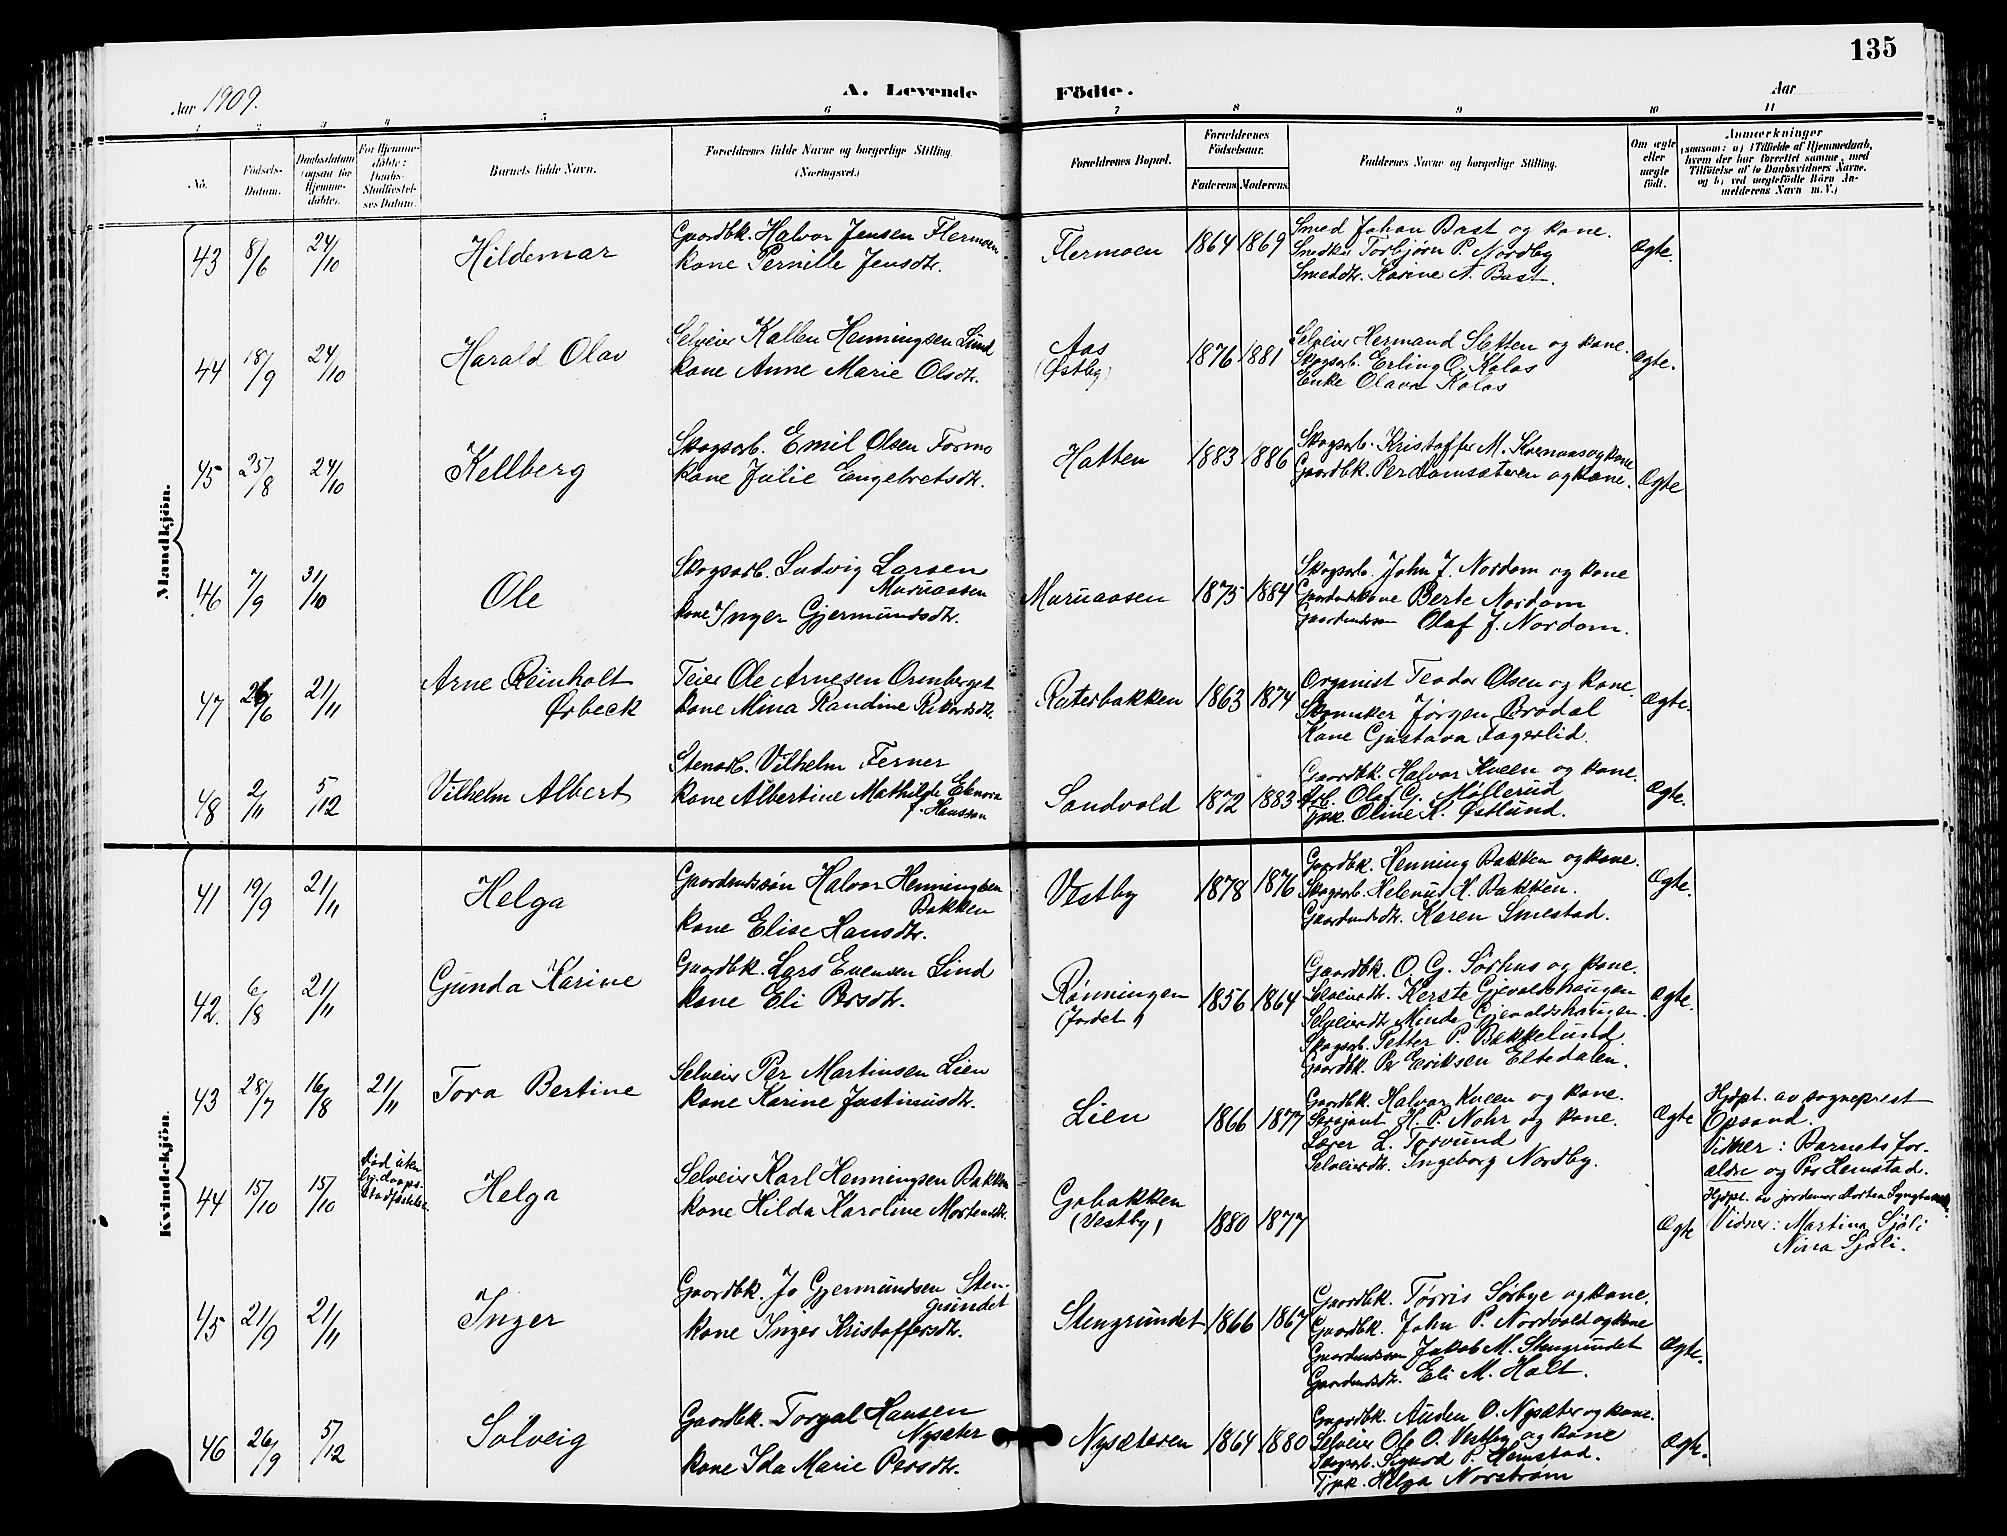 135
Aar 1909.
A. Levende Födte.
Aar
1 2 3 4 5 6 7 8 9 10 11
No.
Födsels-Datum.
Daabsdatum (ogsaa for Hjemme-döbte).
For Hjemme-döbte: Daabs-Stadfæstel-ses Datum.
Barnets fulde Navn.
Forældrenes fulde Navne og borgerlige Stilling. (Næringsvei.)
Forældrenes Bopæl.
Forældrenes Födselsaar.
Faderens. Moderens.
Faddernes Navne og borgerlige Stilling.
Om ægte eller uægte födt.
Anmærkninger
(saasom: a) i Tilfælde af Hjemmedaab, hvem der har forrettet samme, med Tilföielse af to Daabsvidners Navne. og b) ved uægtefödte Börn An-melderens Navn m. V.)
Mandkjön.
43 8/6 24/10 Hildemar
Gaardbk. Halvor Jensen Flermoen
kone Pernille Jensdtr.
Flermoen 1864 1869
Smed Johan Bast og kone.
Torbjørn P. Nordby
Smeddtr. Karine A. Bast.
Ægte.
44 18/9 24/10 Harald Olav
Selveier Kallen Henningsen Lund
kone Anne Marie Olsdtr.
Aas
(Østby)
1876 1881
Selveier Hermand Sletten og kone.
Skogsarb. Erling O. Kolos
Enke Olava Kolos
Ægte.
45 25/8 24/10 Kellberg
Skogsarb. Emil Olsen Formo
kone Julie Engebretsdtr.
Hatten 1883 1886
Skogsarb. Kristoffer M. Kvernaas og kone
Gaardbk. Per Lomsæteren og kone.
Ægte
46 7/9 31/10 Ole
Skogsarb. Ludvig Larsen
Muruaasen
kone Inger Gjermundsdtr.
Muruaasen 1875 1884
Skogsarb. John J. Nordom og kone
Berte Nordom
Olaf J. Nordom.
47 26/6 21/11 Arne Reinholt
Ørbeck
Teier Ole Arnesen Ormberget
kone Mina Randine Rikardsdtr.
Raterbakken 1863 1874
Organist Teodor Olsen og kone.
Skomaker Jørgen Brodal
Kone Gustava Fagerlid.
Ægte.
48 2/11 5/12 Vilhelm Albert
Stenarb. Vilhelm Ferner
kone Albertine Mathilde Elenora
f. Hansson
Sandvold 1872 1883
Gaardbk. Halvor Kveen og kone.
Arb. Olaf G. Møllerud
Tjpk. Oline K. Østlund.
Ægte.
Kvindekjön.
41 19/9 21/11 Helga
Gaardmdssøn Halvor Henningsen
Bakken
kone Elise Hansdtr.
Vestby 1878 1876
Gaardbk. Henning Bakken og kone.
Skogsarb. Helenus H. Bakken.
Gaardmdsdtr. Karen Smestad.
Ægte.
42. 6/8 21/11 Gunda Karine
Gaardbk. Lars Evensen Lind
kone Eli Persdtr.
Rønningen
(Jordet)
1856 1864
Gaardbk. O. G. Sørhus og kone.
Selveierdtr. Kerste Gjevaldshaugen
Selveierdtr. Minda Gjevaldshaugen.
Skogsarb. Petter P. Bækkelund.
Gaardbk. Per Eriksen Eltedalen.
Ægte.
43 28/7 16/8 21/11 Tora Bertine
Selveier Per Martinsen Lien
kone Karine Justinusdtr.
Lien 1866 1877
Gaardbk. Halvor Kveen og kone.
Sersjant H. P. Nohr og kone.
Lærer L. Torvund
Selveierdtr. Ingeborg Nordby.
Ægte
Hjdpt. av sogneprest
Opsand.
Vidner: Barnets for-
ældre og Per Hemstad.
44 15/10 15/10
død uten
hj.daaps-
stadfæstelse
Helga
Selveier Karl Henningsen Bakken
kone Hilda Karoline Mortensdtr.
Gobakken
(Vestby)
1880 1877
Ægte
Hjdpt. av jordemor
Vidner: Martina Sjøli
Nina Sjøli.
45 21/9 21/11 Inger
Gaardbk. Jo Gjermundsen Sten-
grundet
kone Inger Kristoffersdtr.
Stengrundet 1866 1867
Gaardbk. Torris Sørbye og kone.
Gaardbk. John P. Nordvold og kone
Gaardmdssøn Jakob M. Stengrundet
Gaardmdsdtr. Eli M. Holt.
Ægte.
46 26/9 5/12 Solveig
Gaardbk. Torgal Hansen
Nysæter
kone Ida Marie Persdtr.
Nysæteren 1864 1880
Gaardbk. Auden O. Nysæter og kone.
Selveier Ole O. Vestby og kone
Skogsarb. Sigurd P. Hemstad.
Tjpk. Helga Norstrøm
Ægte.